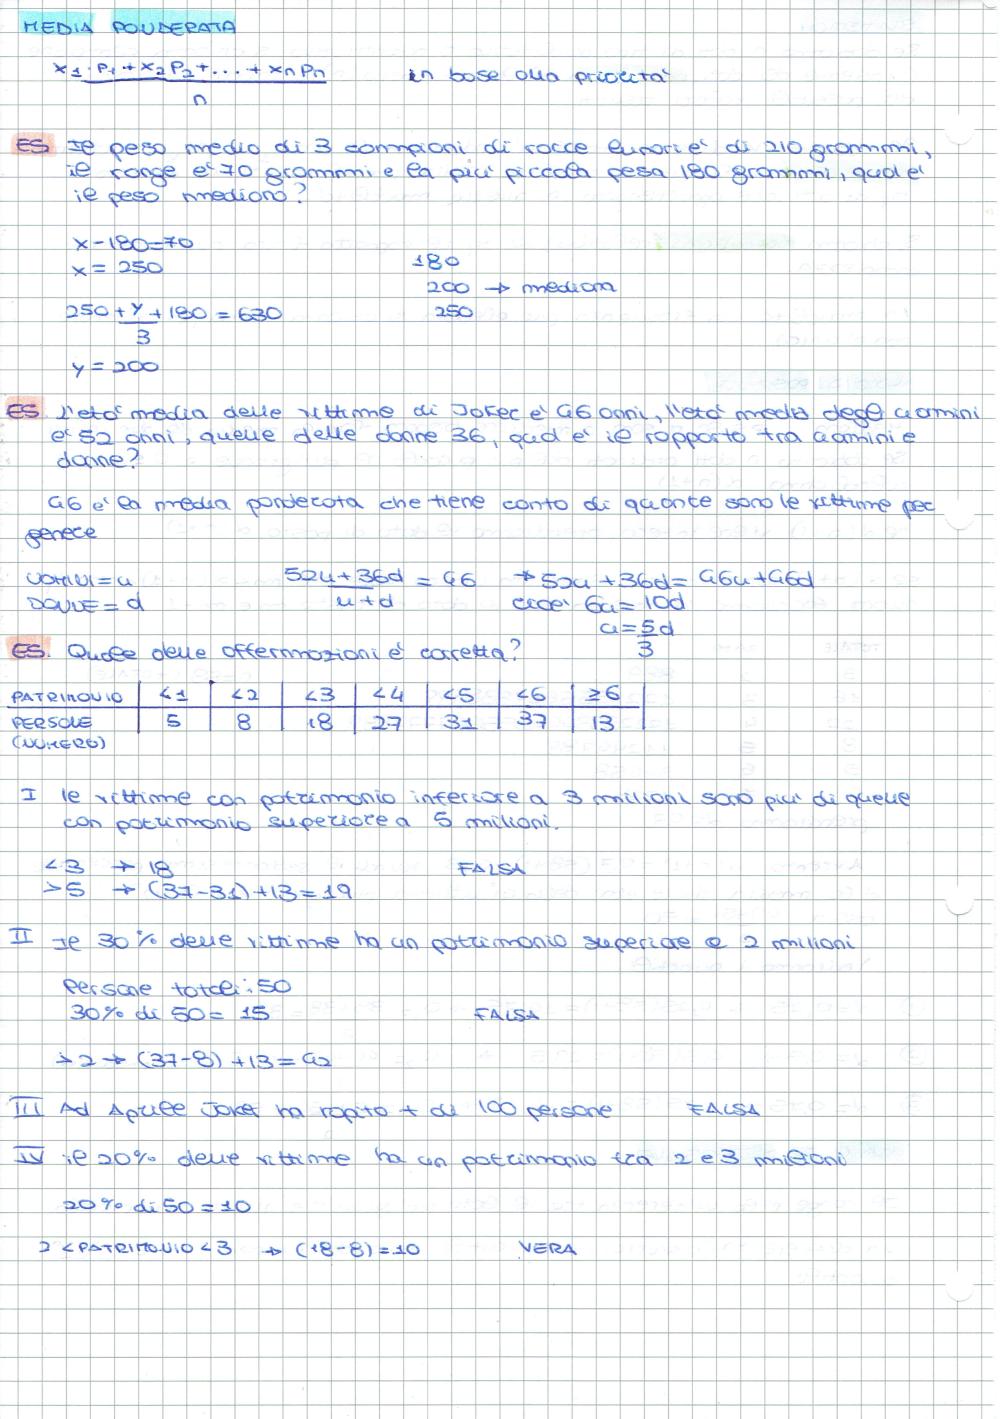 MEDIA PONDERATA
x1·P1+x2P2+...+xnPn in base alla priorità
n
ES Il peso medio di 3 campioni di rocce lunari è di 210 grammi,
il range è 70 grammi e la più piccola pesa 180 grammi, qual è
il peso mediano?
x-180=70
x = 250
180
200 → mediana
250
250+y+180 = 630
3
y = 200
ES L'età media delle vittime di Joker è 46 anni, l'età media degli uomini
è 52 anni, quella delle donne 36, qual è il rapporto tra uomini e
donne?
46 è la media ponderata che tiene conto di quante sono le vittime per
genere
UOMINI = u
DONNE = d
52u+36d = 46 → 52u+36d= 46u+46d
u+d cioè 6u= 10d
u=5d
3
ES. Quale delle affermazioni è corretta?
PATRIMONIO <1 <2 <3 <4 <5 <6 ≥6
PERSONE 5 8 18 27 31 37 13
(NUMERO)
I le vittime con patrimonio inferiore a 3 milioni sono più di quelle
con patrimonio superiore a 5 milioni.
<3 → 18 FALSA
>5 → (37-31)+13=19
II Il 30% delle vittime ha un patrimonio superiore a 2 milioni
Persone totali: 50
30% di 50= 15 FALSA
>2 → (37-8)+13=42
III Ad Aprile Joker ha rapito + di 100 persone FALSA
IV il 20% delle vittime ha un patrimonio tra 2 e 3 milioni
20% di 50 = 10
2 <PATRIMONIO <3 → (18-8)=10 VERA